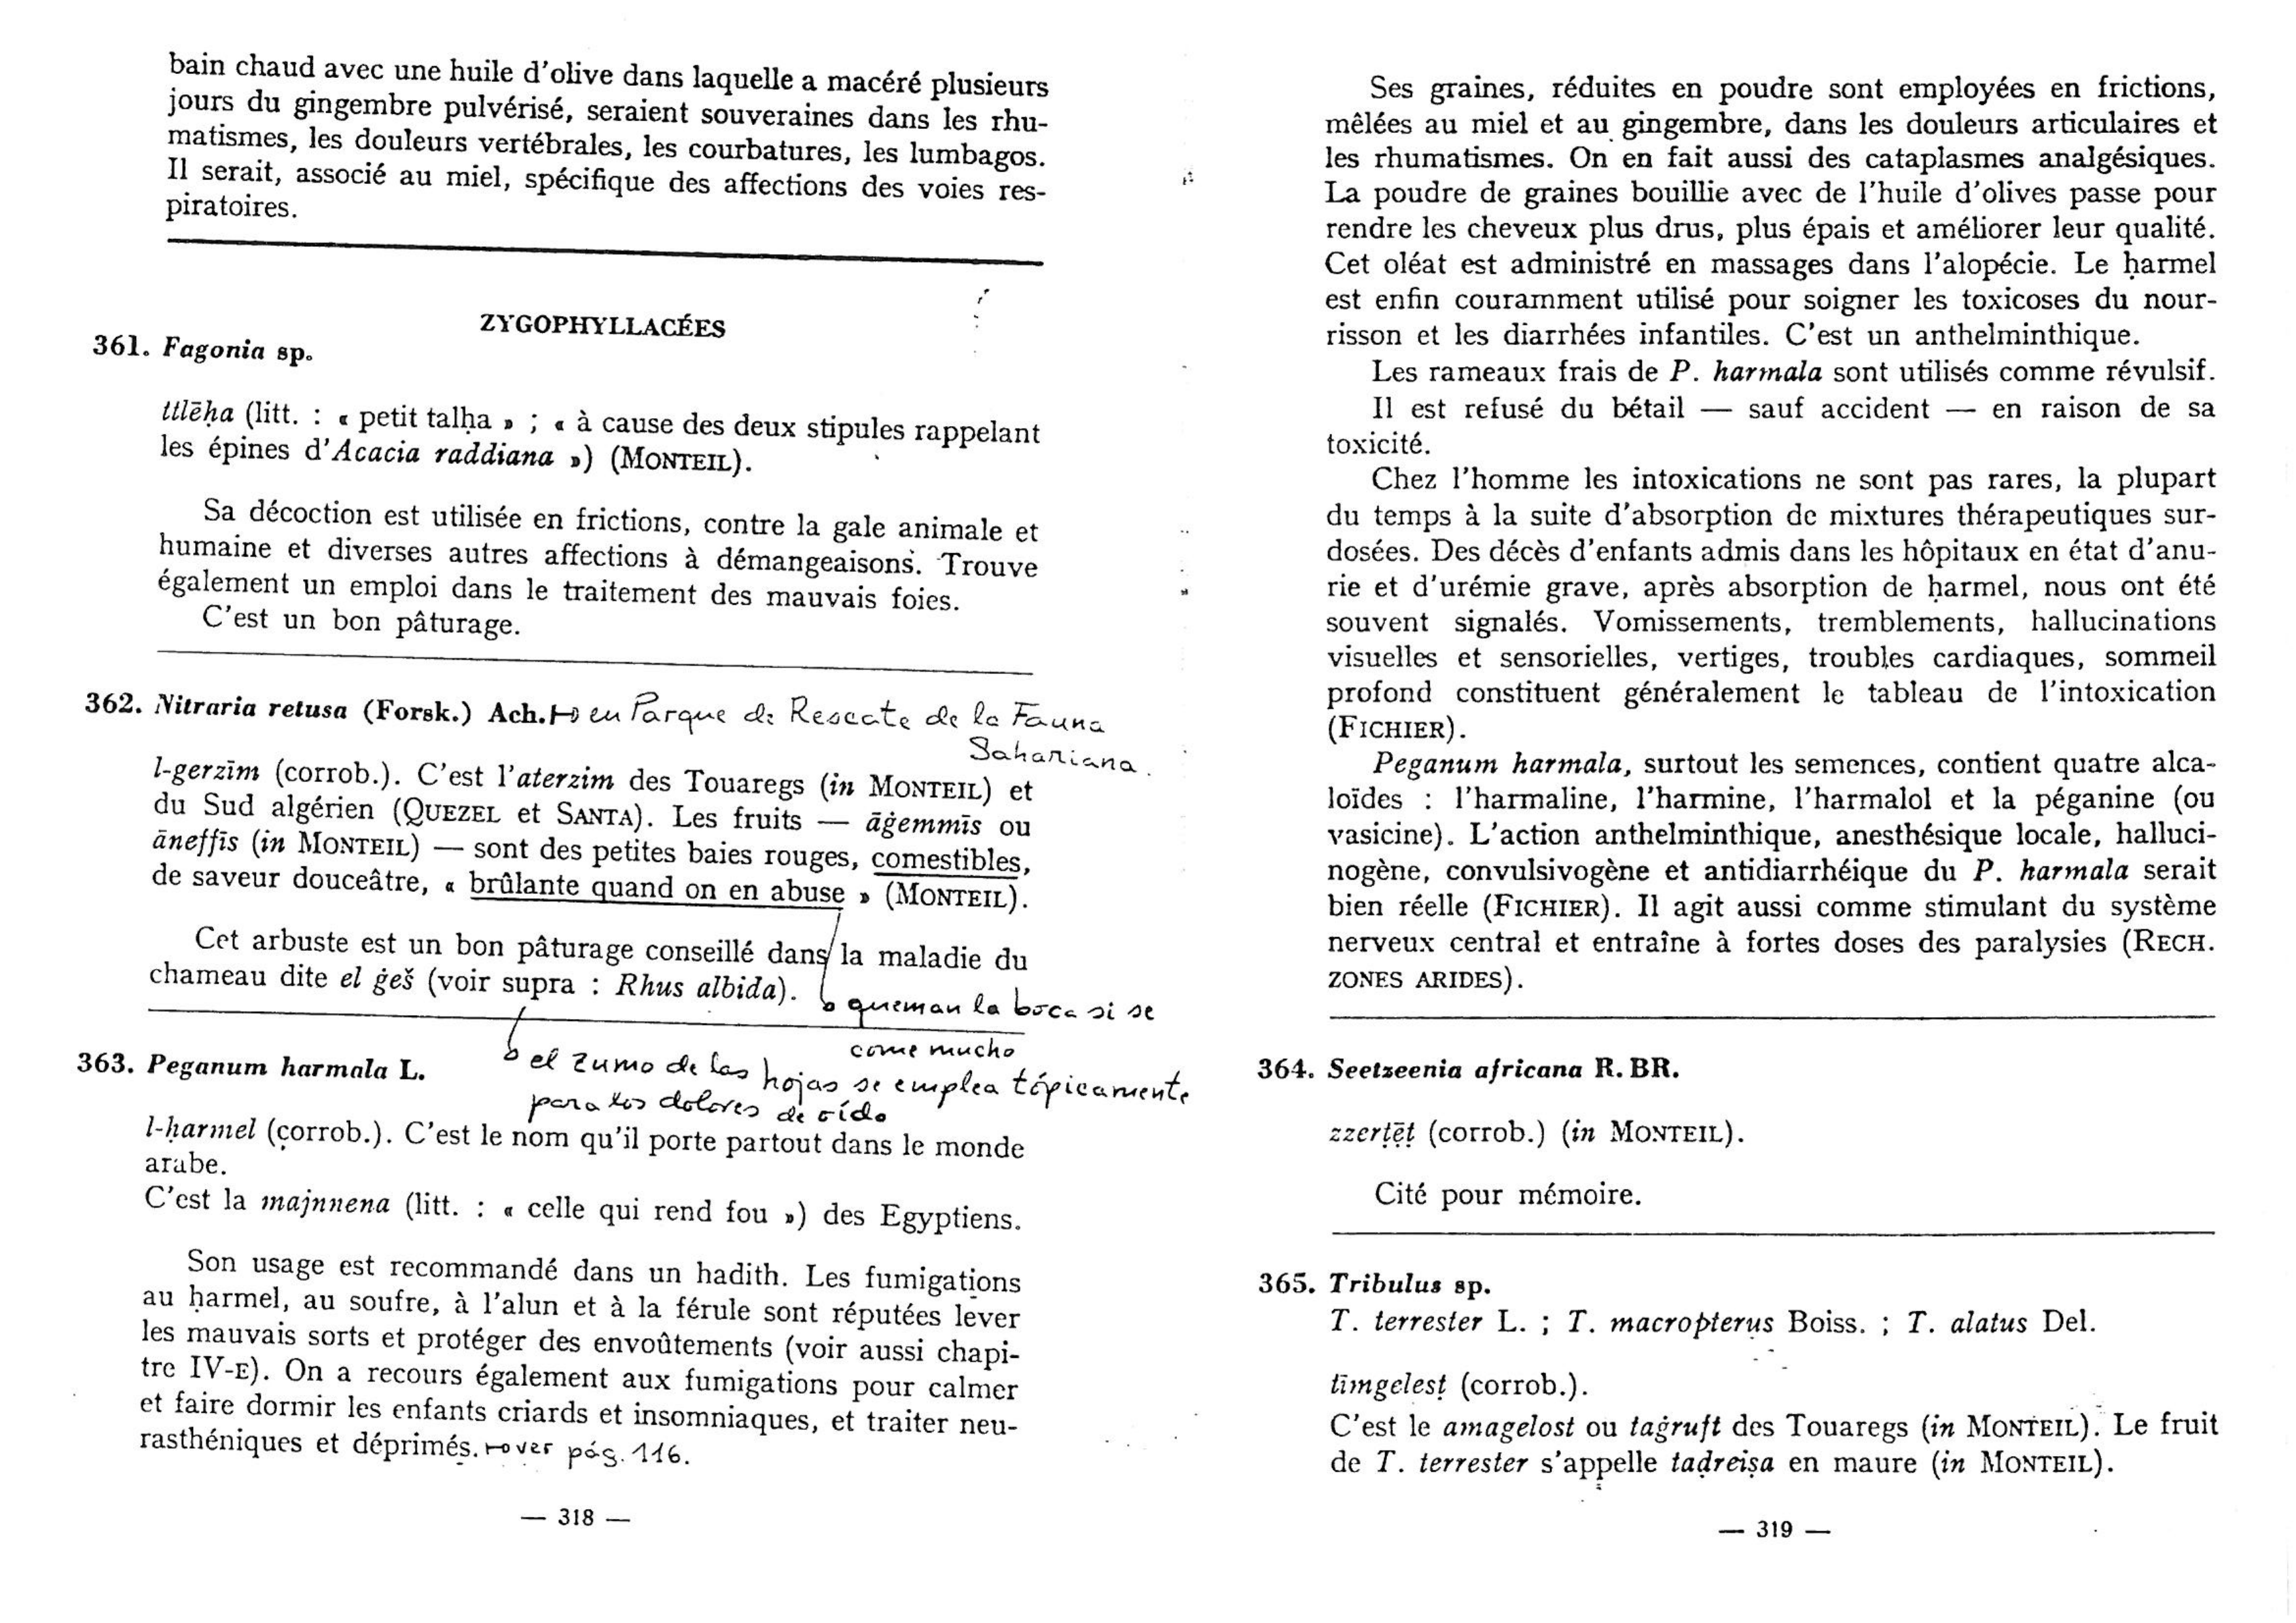 bain chaud avec une huile d'olive dans laquelle a macéré plusieurs
jours du gingembre pulvérisé, seraient souveraines dans les rhu-
matismes, les douleurs vertébrales, les courbatures, les lumbagos.
Il serait, associé au miel, spécifique des affections des voies res-
piratoires.
ZYGOPHYLLACÉES
361. Fagonia sp.
ttlēḥa (litt. : « petit talḥa » ; « à cause des deux stipules rappelant
les épines d'Acacia raddiana ») (MONTEIL).
Sa décoction est utilisée en frictions, contre la gale animale et
humaine et diverses autres affections à démangeaisons. Trouve
également un emploi dans le traitement des mauvais foies.
C'est un bon pâturage.
362. Nitraria retusa (Forsk.) Ach. → en Parque de Rescate de la Fauna
Sahariana.
l-gerzīm (corrob.). C'est l'aterzim des Touaregs (in MONTEIL) et
du Sud algérien (QUEZEL et SANTA). Les fruits — āġemmīs ou
āneffīs (in MONTEIL) — sont des petites baies rouges, comestibles,
de saveur douceâtre, « brûlante quand on en abuse » (MONTEIL).
Cet arbuste est un bon pâturage conseillé dans la maladie du
chameau dite el ġeš (voir supra : Rhus albida).
→ queman la boca si se
come mucho
→ el zumo de las hojas se emplea tópicamente
para los dolores de oído
363. Peganum harmala L.
l-ḥarmel (corrob.). C'est le nom qu'il porte partout dans le monde
arabe.
C'est la majnnena (litt. : « celle qui rend fou ») des Egyptiens.
Son usage est recommandé dans un hadith. Les fumigations
au ḥarmel, au soufre, à l'alun et à la férule sont réputées lever
les mauvais sorts et protéger des envoûtements (voir aussi chapi-
tre IV-E). On a recours également aux fumigations pour calmer
et faire dormir les enfants criards et insomniaques, et traiter neu-
rasthéniques et déprimés. → ver pág. 116.
— 318 —
Ses graines, réduites en poudre sont employées en frictions,
mêlées au miel et au gingembre, dans les douleurs articulaires et
les rhumatismes. On en fait aussi des cataplasmes analgésiques.
La poudre de graines bouillie avec de l'huile d'olives passe pour
rendre les cheveux plus drus, plus épais et améliorer leur qualité.
Cet oléat est administré en massages dans l'alopécie. Le ḥarmel
est enfin couramment utilisé pour soigner les toxicoses du nour-
risson et les diarrhées infantiles. C'est un anthelminthique.
Les rameaux frais de P. harmala sont utilisés comme révulsif.
Il est refusé du bétail — sauf accident — en raison de sa
toxicité.
Chez l'homme les intoxications ne sont pas rares, la plupart
du temps à la suite d'absorption de mixtures thérapeutiques sur-
dosées. Des décès d'enfants admis dans les hôpitaux en état d'anu-
rie et d'urémie grave, après absorption de ḥarmel, nous ont été
souvent signalés. Vomissements, tremblements, hallucinations
visuelles et sensorielles, vertiges, troubles cardiaques, sommeil
profond constituent généralement le tableau de l'intoxication
(FICHIER).
Peganum harmala, surtout les semences, contient quatre alca-
loïdes : l'harmaline, l'harmine, l'harmalol et la péganine (ou
vasicine). L'action anthelminthique, anesthésique locale, halluci-
nogène, convulsivogène et antidiarrhéique du P. harmala serait
bien réelle (FICHIER). Il agit aussi comme stimulant du système
nerveux central et entraîne à fortes doses des paralysies (RECH.
ZONES ARIDES).
364. Seetzeenia africana R. BR.
zzerṭēṭ (corrob.) (in MONTEIL).
Cité pour mémoire.
365. Tribulus sp.
T. terrester L. ; T. macropterus Boiss. ; T. alatus Del.
tīmgelesṭ (corrob.).
C'est le amagelost ou taġruft des Touaregs (in MONTEIL). Le fruit
de T. terrester s'appelle taḍreiṣa en maure (in MONTEIL).
— 319 —